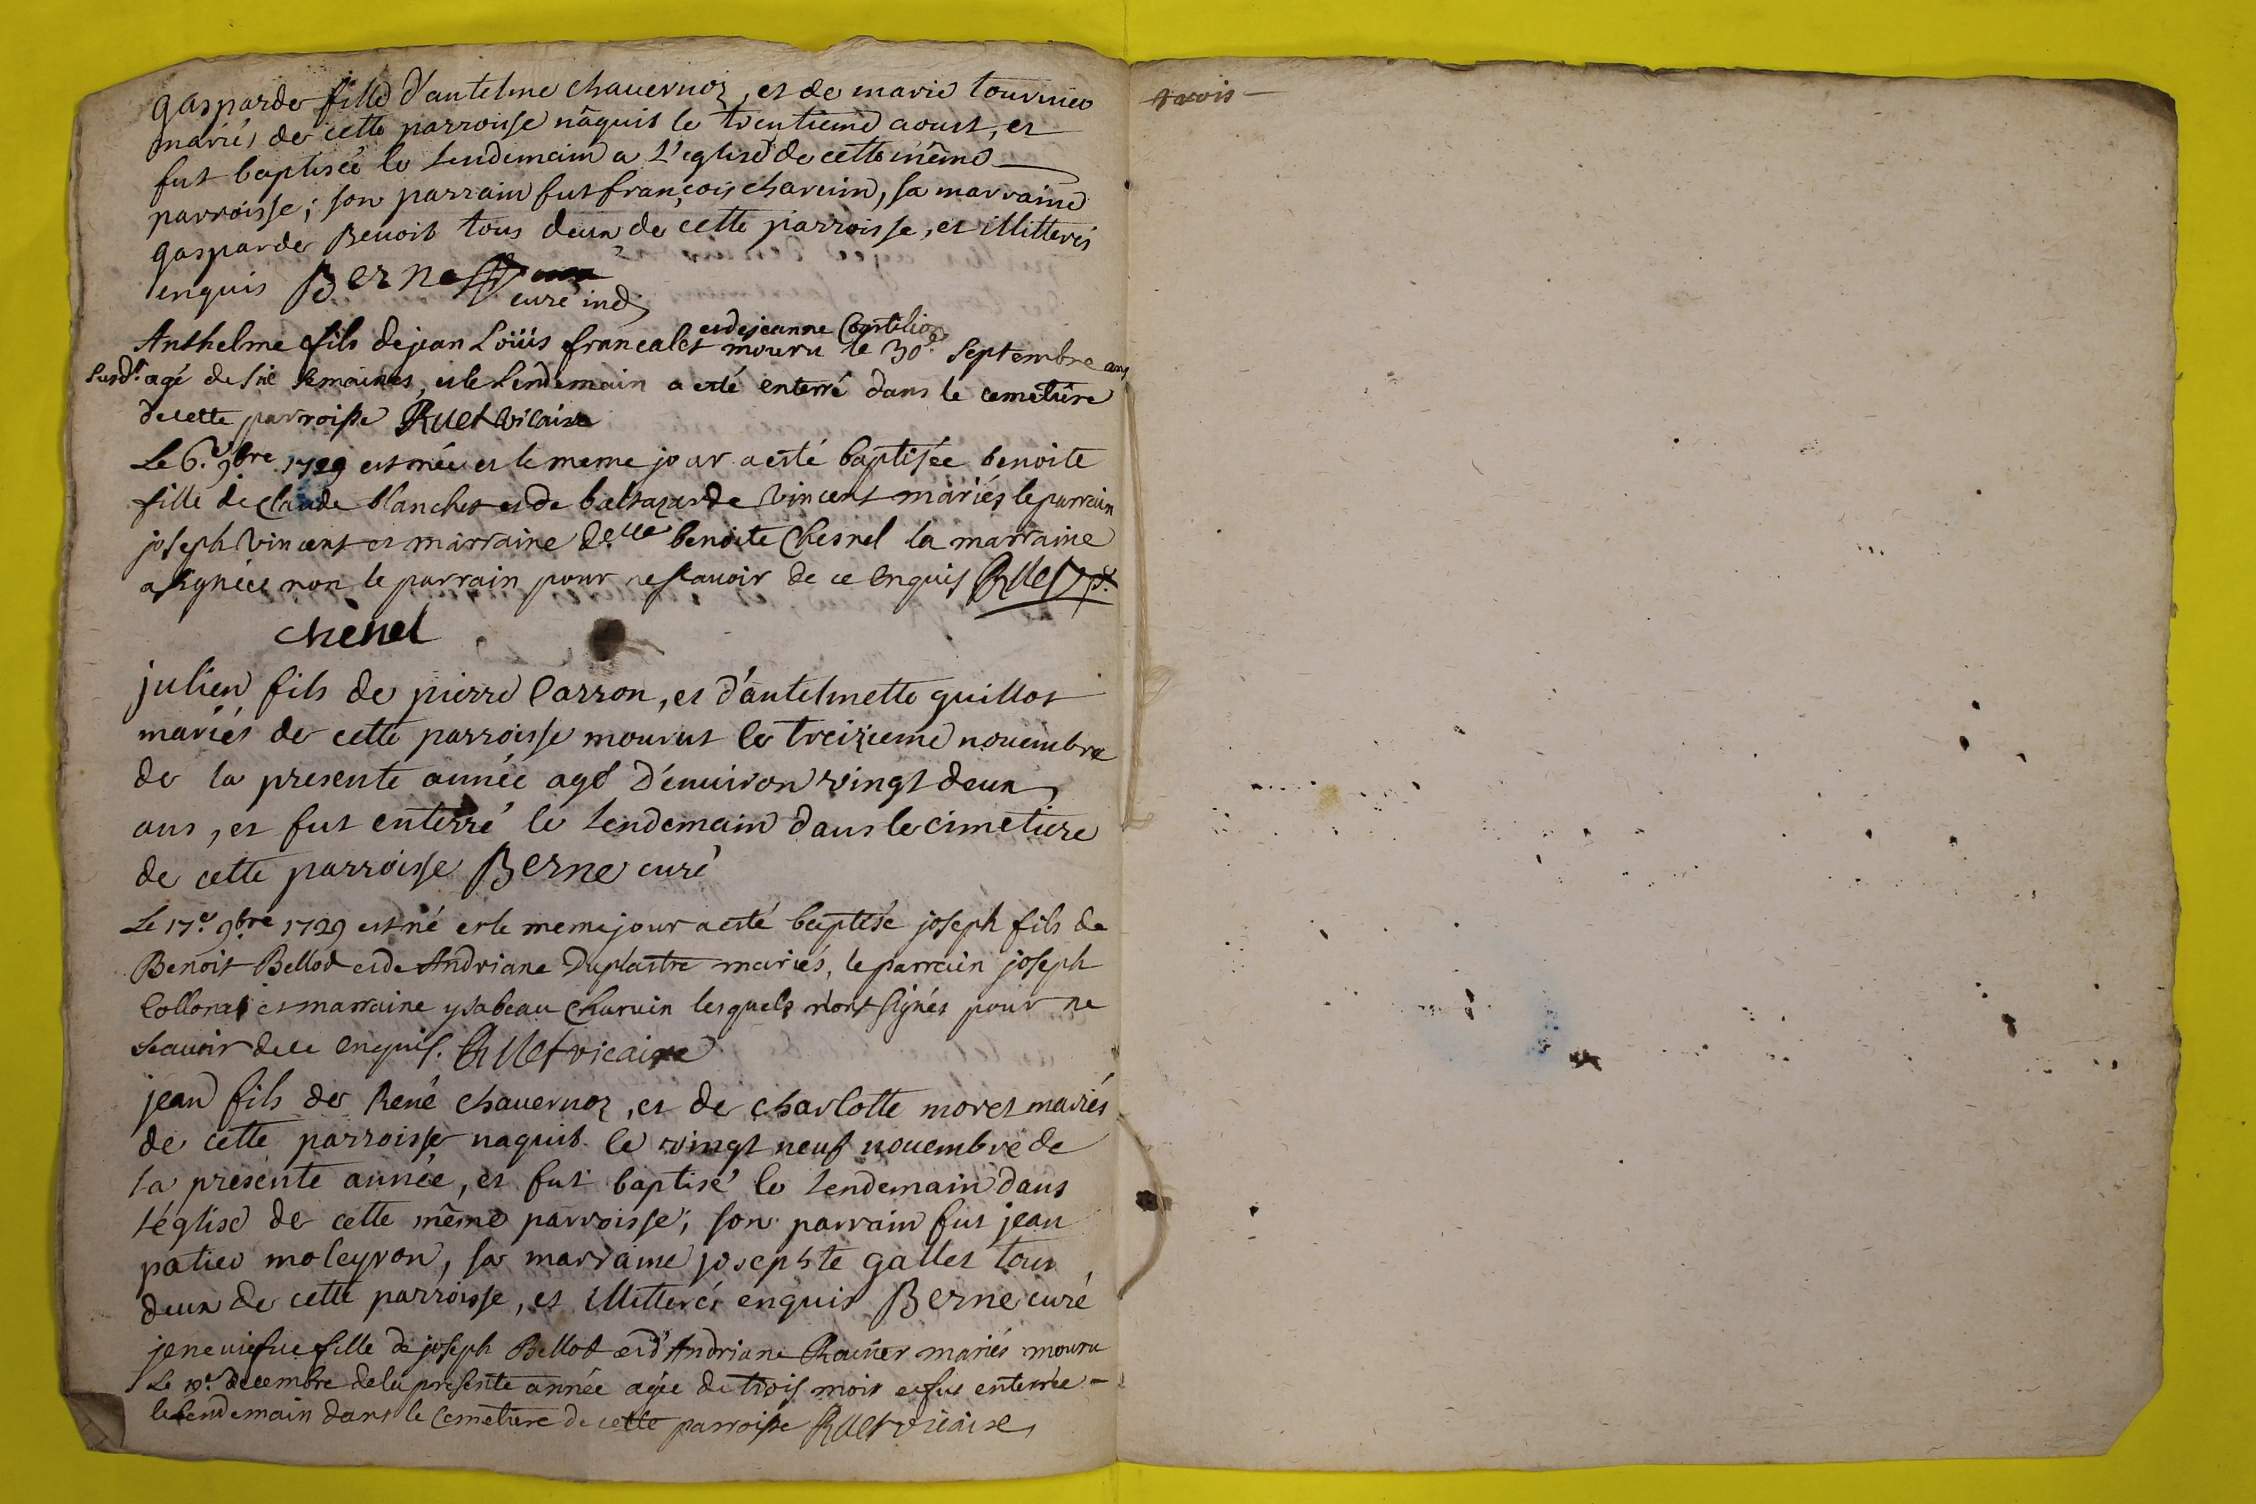 gasparde fille d'antelme chauernoz, et de marie tournier
mariés de cette parroisse nâquit le trentieme aoust, et
fut baptisée le lendemain a l'eglise de cette même
parroisse; son parrain fut françois charuin, sa marraine
gasparde Benoit tous deux de cette parroisse, et illitterés
enquis Berne
curé ind
et de jeanne Castilion
Anthelme fils de jean Loüis francalet mouru le 30e Septembre an
susdt agé de six semaines, et le lendemain a esté enterré dans le cemetiere
de cette parroisse Ruet vicaire
Le 6.e 9bre 1729 est née et le meme jour a esté baptisée benoite
fille de claude blanchet et de baltazarde vincent mariés le parrain
joseph vincent et marraine delle benoite Chesnel la marraine
a signée non le parrain pour ne scauoir de ce enquis Ruet
chenel
julien fils de pierre Carron, et d'antelmette guillot
mariés de cette parroisse mourut le treizieme nouembre
de la presente année agé d'enuiron vingt deux
ans, et fut enterré le lendemain dans le cimetiere
de cette parroisse Berne curé
Le 17.e 9bre 1729 est né et le meme jour a esté baptisé joseph fils de
Benoit Bellod et de Andriane Duplastre mariés, le parrain joseph
Collonat et marraine ysabeau Charuin lesquels n'ont signés pour ne
scauoir de ce enquis. Ruet vicaire
jean fils de René chauernoz, et de charlotte moret mariés
de cette parroisse naquit le vingt neuf nouembre de
la presente année, et fut baptisé le lendemain dans
l'église de cette même parroisse; son parrain fut jean
patier moleyron, sa marraine josephte gallet tous
deux de cette parroisse, et illitterés enquis Berne curé
jeneuiefue fille de joseph Bellod et d'Andriane Rainer mariés mouru
Le decembre de la presente année agée de trois mois et fut enterrée
le lendemain dans le Cemetiere de cette parroisse Ruet vicaire